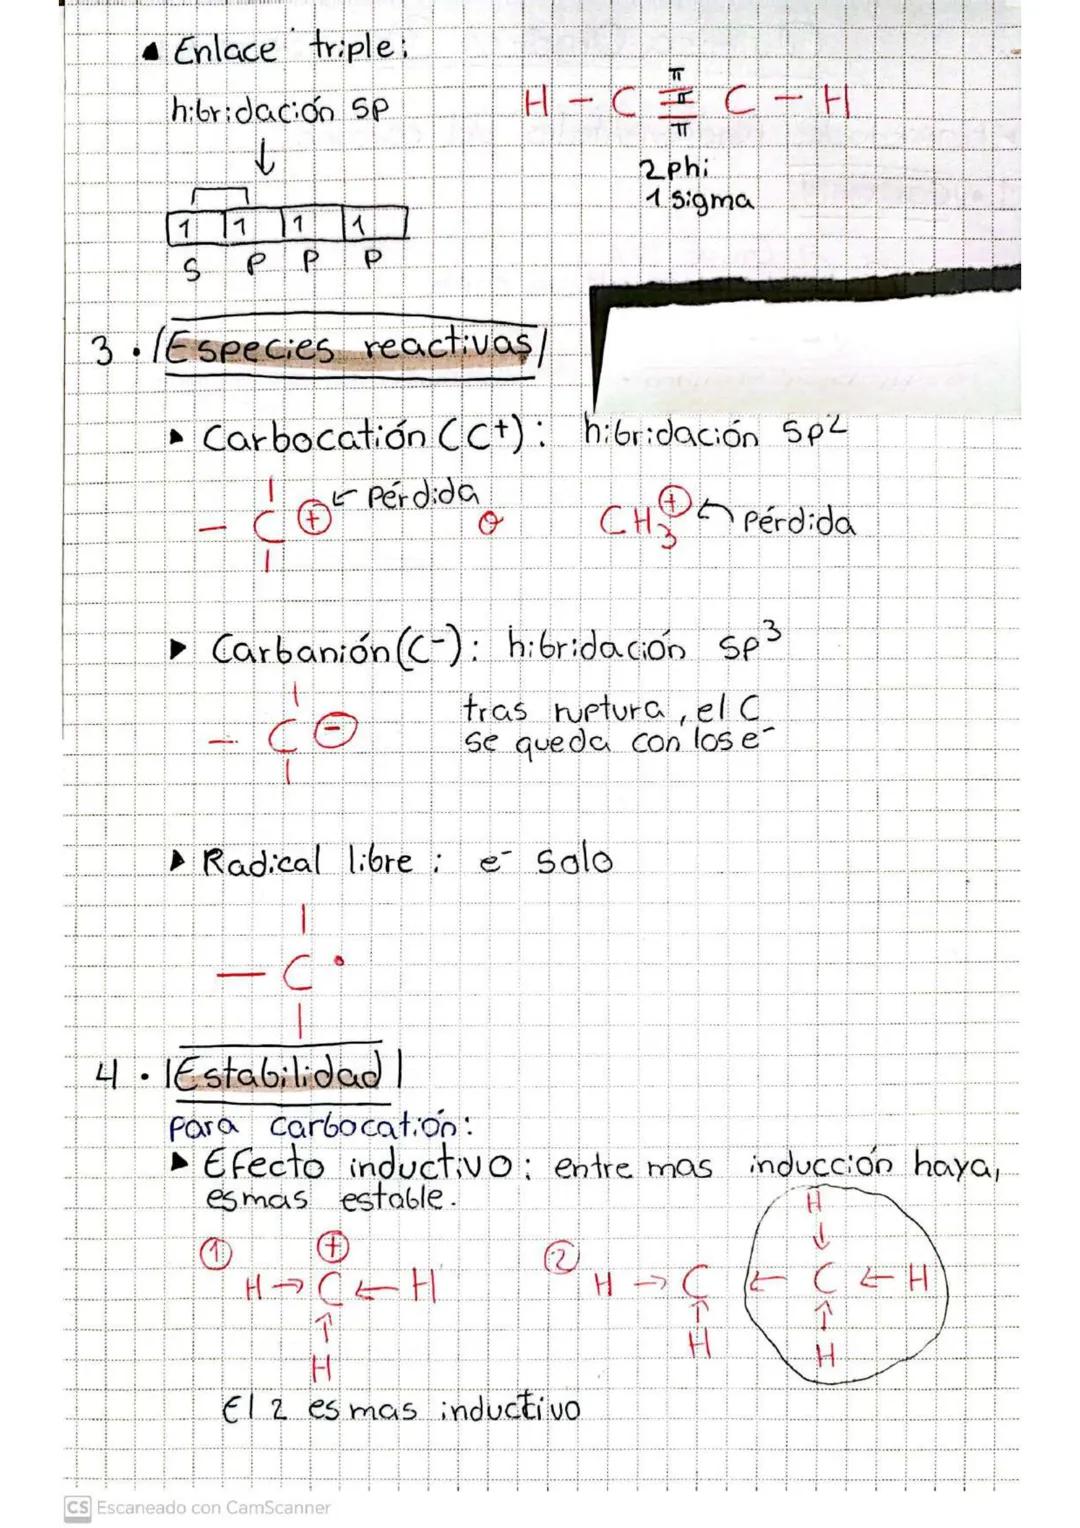 Enlace triple:
hibridación sp
H - C ≡ C - H
π
π
π
2 phi
1 sigma
1 1 1 1
S P P P
3. Especies reactivas
Carbocatión (C+): hibridación sp2
- C + ← pérdida o CH3+ ← pérdida
Carbanión (C-): hibridación sp3
- C -
tras ruptura, el C
se queda con los e-
Radical libre: e- solo
- C •
4. Estabilidad
para carbocatión:
Efecto inductivo: entre mas inducción haya,
es mas estable.
1 + 2 H
H → C ← H H → C ← C ← H
H H H
El 2 es mas inductivo
CS Escaneado con CamScanner